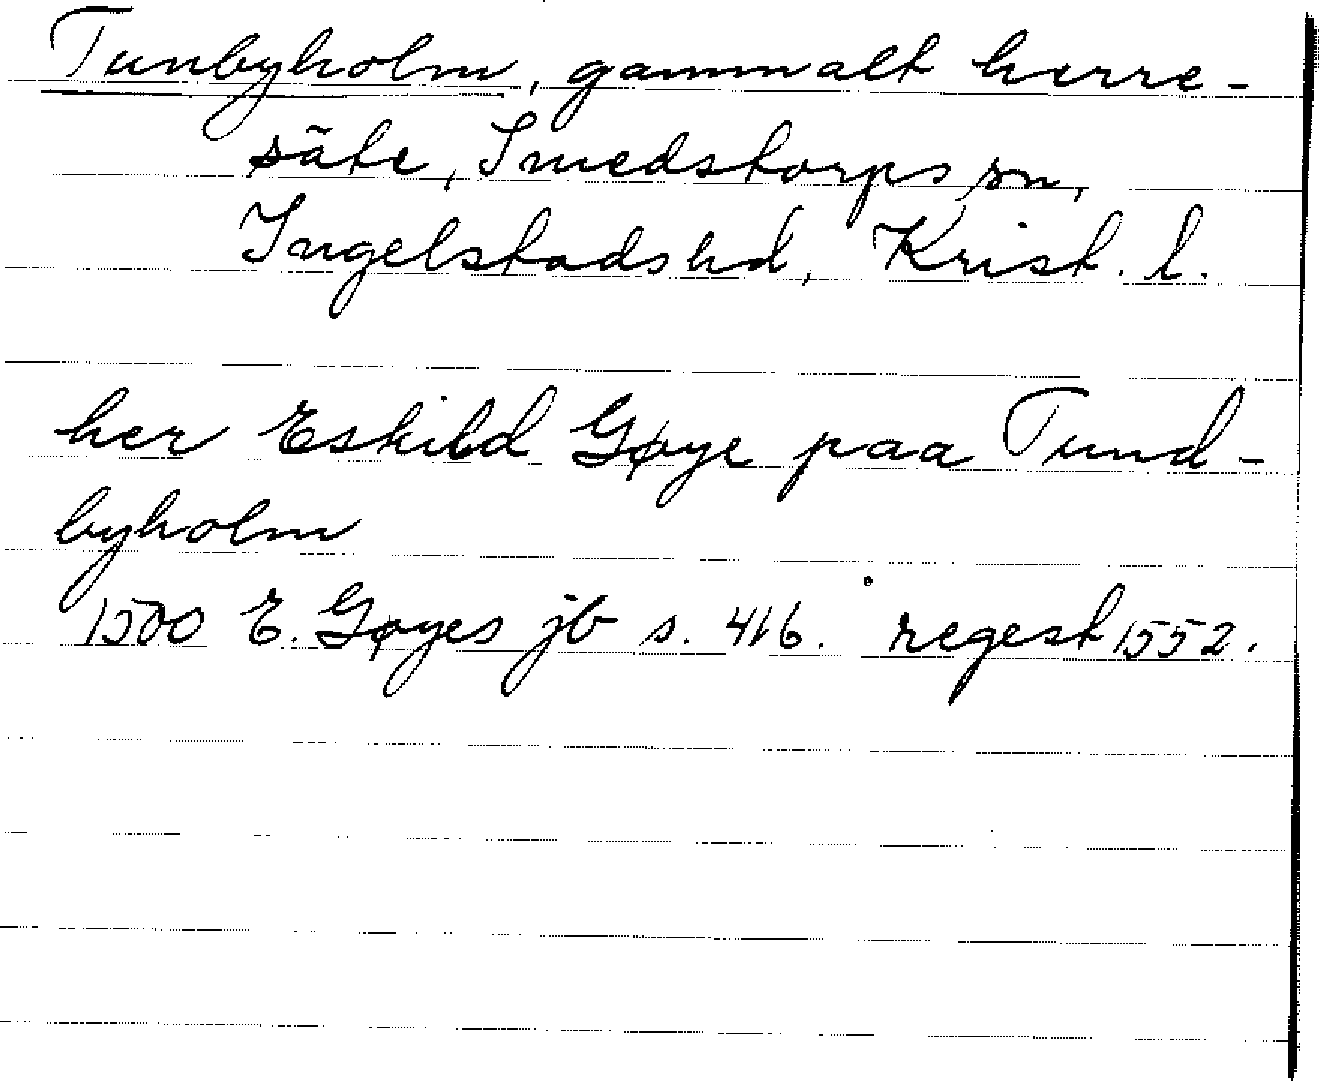 Tunbyholm, gammalt herre-
säte, Smedstorps sn,
Ingelstads hd, Krist. l.
her Eskild Gøye paa Tund-
byholm
1500 E. Gøyes jb s. 416. regest 1552.